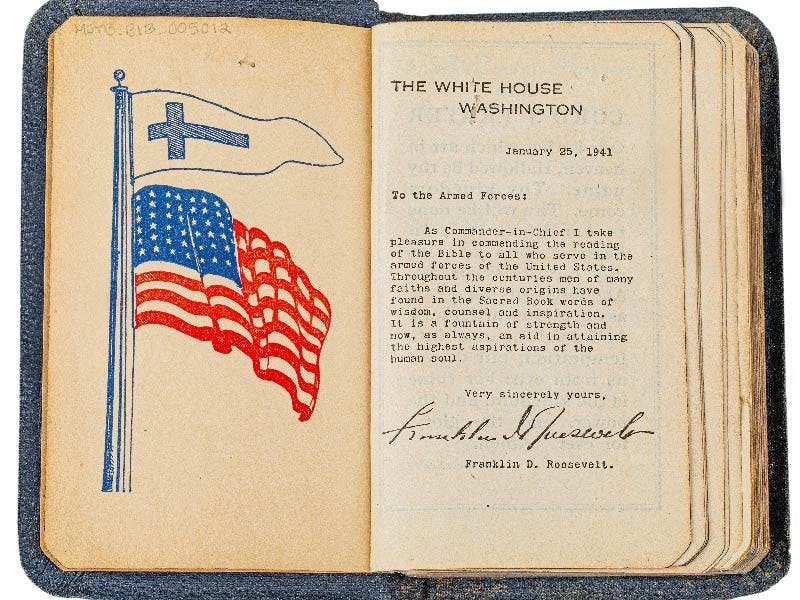 MOTB.BIB.005012
THE WHITE HOUSE
WASHINGTON
January 25, 1941
To the Armed Forces:
As Commander-in-Chief I take
pleasure in commending the reading
of the Bible to all who serve in the
armed forces of the United States.
Throughout the centuries men of many
faiths and diverse origins have
found in the Sacred Book words of
wisdom, counsel and inspiration.
It is a fountain of strength and
now, as always, an aid in attaining
the highest aspirations of the
human soul.
Very sincerely yours,
Franklin D. Roosevelt
Franklin D. Roosevelt.